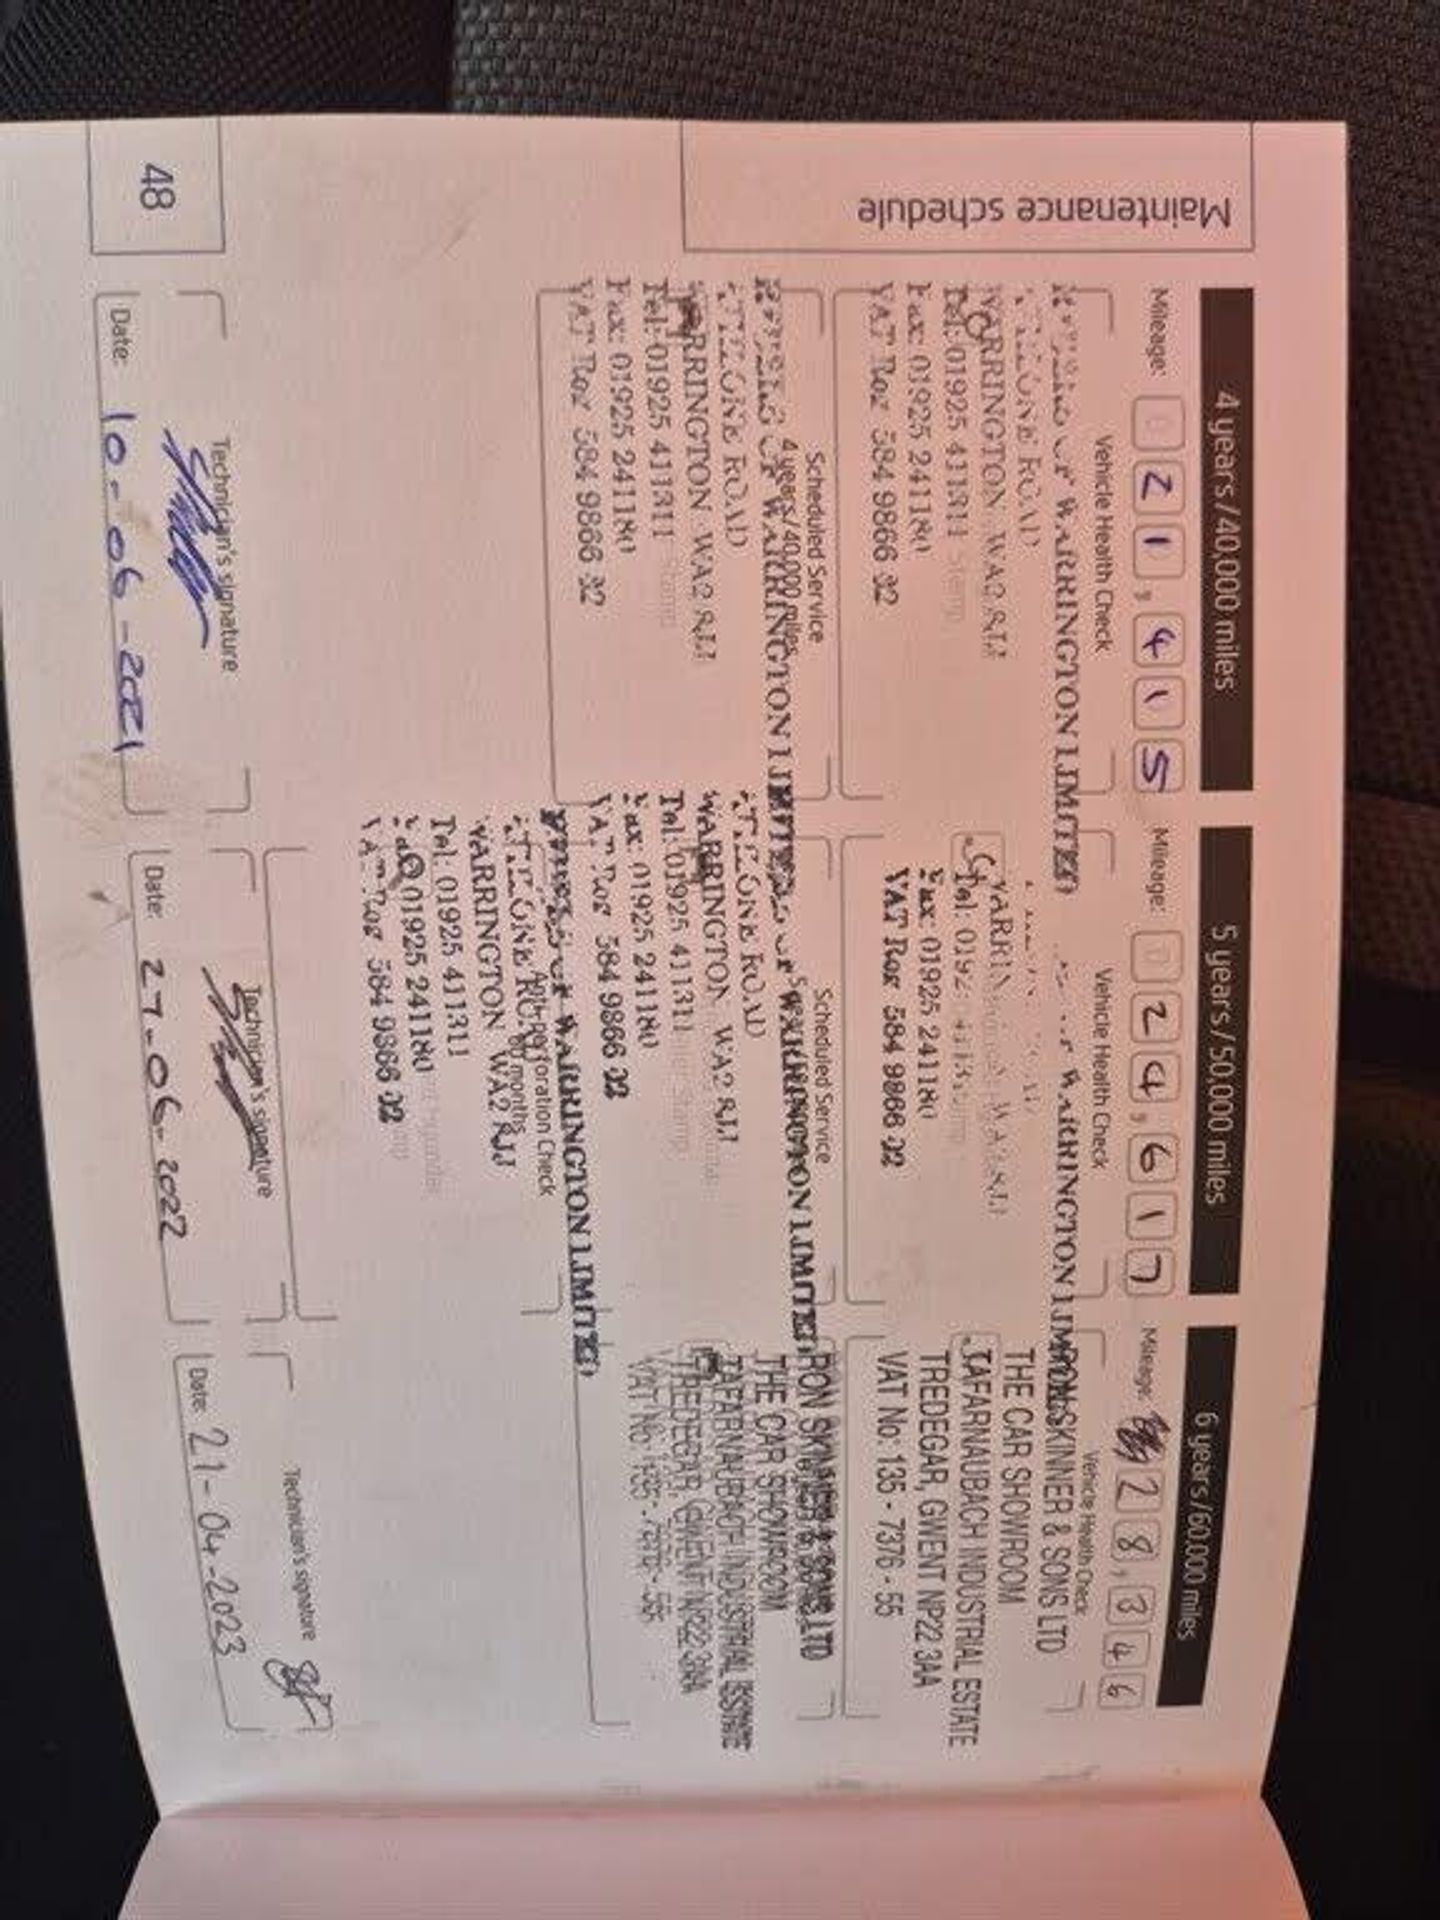 Maintenance schedule
4 years/40,000 miles
Mileage: 21,415
Vehicle Health Check
WARRINGTON LIMITED
ROAD
WARRINGTON WA2
Tel: 01925 411311
Fax: 01925 241180
VAT Reg 584 9866 32
Scheduled Service
4 years/40,000 miles
WARRINGTON LIMITED
ROAD
WARRINGTON WA2
Tel: 01925 411311
Fax: 01925 241180
VAT Reg 584 9866 32
Technician's signature
Date: 10-06-2021
5 years/50,000 miles
Mileage: 024,617
Vehicle Health Check
WARRINGTON LIMITED
Fax: 01925 241180
VAT Reg 584 9866 32
Scheduled Service
WARRINGTON LIMITED
ROAD
WARRINGTON WA2
Tel: 01925 411311
Fax: 01925 241180
VAT Reg 584 9866 32
Anti-Perforation Check
60 months
WARRINGTON LIMITED
WARRINGTON WA2
Tel: 01925 411311
01925 241180
584 9866 32
Technician's signature
Date: 27-06-2022
6 years/60,000 miles
Mileage: 28,346
Vehicle Health Check
RON SKINNER & SONS LTD
THE CAR SHOWROOM
TAFARNAUBACH INDUSTRIAL ESTATE
TREDEGAR, GWENT NP22 3AA
VAT No: 135 - 7376 - 55
RON SKINNER & SONS LTD
THE CAR SHOWROOM
TAFARNAUBACH INDUSTRIAL ESTATE
TREDEGAR, GWENT NP22 3AA
VAT No: 135 - 7376 - 55
Technician's signature
Date: 21-04-2023
48